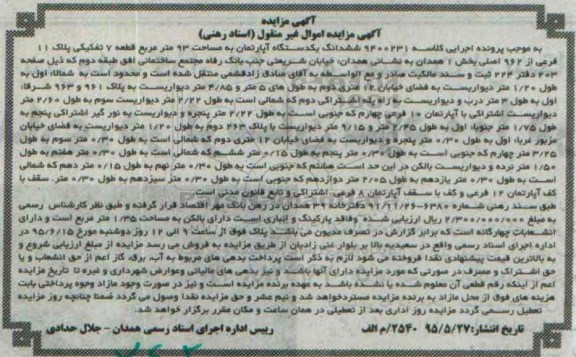 آگهی مزایده
آگهی مزایده اموال غیر منقول (اسناد رهنی)
به موجب پرونده اجرایی کلاسه ۹۴۰۰۲۳۱ ششدانگ یکدستگاه آپارتمان به مساحت ۹۳ متر مربع قطعه ۷ تفکیکی پلاک ۱۱
فرعی از ۹۶۲ اصلی بخش ۱ همدان به نشانی همدان، خیابان شریعتی جنب بانک رفاه مجتمع ساختمانی افق طبقه دوم که ذیل صفحه
۲۰۳ دفتر ۲۲۴ ثبت و سند مالکیت صادر و مع الواسطه به آقای صادق زادقشمی منتقل شده است و محدود است به شمالا، اول به
طول ۱/۲۰ متر دیواریست به فضای خیابان ۱۲ متری دوم به طول های ۵ متر و ۴/۸۵ متر دیواریست به پلاک ۹۶۱ و ۹۶۳ شرقا،
اول به طول ۳ متر درب و دیواریست به راه پله اشتراکی دوم که شمالی است به طول ۲/۲۲ متر دیواریست سوم به طول ۲/۶۰ متر
دیواریست اشتراکی با آپارتمان ۱۰ فرعی چهارم که جنوبی است به طول ۲/۲۲ متر پنجره و دیواریست به نور گیر اشتراکی پنجم به
طول ۱/۷۵ متر جنوبا، اول به طول ۲/۴۵ متر و ۹/۱۵ متر دیواریست اشتراکی با پلاک ۲۶۳ دوم به طول ۱/۲۰ متر دیواریست به فضای خیابان
مزبور غربا، اول به طول ۰/۳۰ متر پنجره و دیواریست به فضای خیابان ۱۲ متری دوم که شمالی است به طول ۰/۳۰ متر سوم به طول
۳/۲۵ متر چهارم که جنوبی است به طول ۰/۳۰ متر پنجم به طول ۰/۱۵ متر ششم که شمالی است به طول ۰/۳۰ متر هفتم به طول
۱/۵۰ متر نرده و دیواریست بالکن در این حد است هشتم که جنوبی است به طول ۰/۳۰ متر نهم به طول ۰/۱۵ متر دهم که شمالی
است به طول ۰/۳۰ متر یازدهم به طول ۲/۰۵ متر دوازدهم که جنوبی است به طول ۰/۳۰ متر سیزدهم به طول ۰/۳۰ متر. سقف با
کف آپارتمان ۱۲ فرعی و کف با سقف آپارتمان ۸ فرعی اشتراکی و تابع قانون مدنی است
طبق سند رهنی شماره ۶۳۸۰-۹۲/۱۱/۲۶ دفترخانه ۳۹ همدان در رهن بانک مهر اقتصاد قرار گرفته و طبق نظر کارشناس رسمی
به مبلغ ۲/۳۰۰/۰۰۰/۰۰۰ ریال ارزیابی شده و فاقد پارکینگ و انباری است دارای بالکن به مساحت ۱/۳۵ متر مربع است و دارای
انشعابات چهارگانه است که برابر گزارش در تصرف مدیون می باشد پلاک فوق از ساعت ۹ الی ۱۲ روز دوشنبه مورخ ۹۵/۶/۱۵ در
اداره اجرای اسناد رسمی واقع در سعیدیه بالا بر بلوار غنی زادیان از طریق مزایده به فروش می رسد مزایده از مبلغ ارزیابی شروع و
به بالاترین قیمت پیشنهادی نقدا فروخته می شود لازم به ذکر است پرداخت بدهی های مربوط به آب، برق، گاز اعم از حق انشعاب و یا
حق اشتراک و مصرف در صورتی که مورد مزایده دارای آنها باشد و نیز بدهی های مالیاتی وعوارض شهرداری و غیره تا تاریخ مزایده
اعم از اینکه رقم قطعی آن معلوم شده یا نشده باشد به عهده برنده مزایده است و نیز در صورت وجود مازاد وجوه پرداختی بابت
هزینه های فوق از محل مازاد به برنده مزایده مستردخواهد شد و نیم عشر و حق مزایده نقدا وصول می گردد ضمنا چنانچه روز مزایده
تعطیل رسمی گردد مزایده روز اداری بعد از تعطیلی در همان ساعت و مکان مقرر برگزار خواهد شد.
تاریخ انتشار: ۹۵/۵/۲۷ ۲۵۴۰/م الف رییس اداره اجرای اسناد رسمی همدان - جلال حدادی